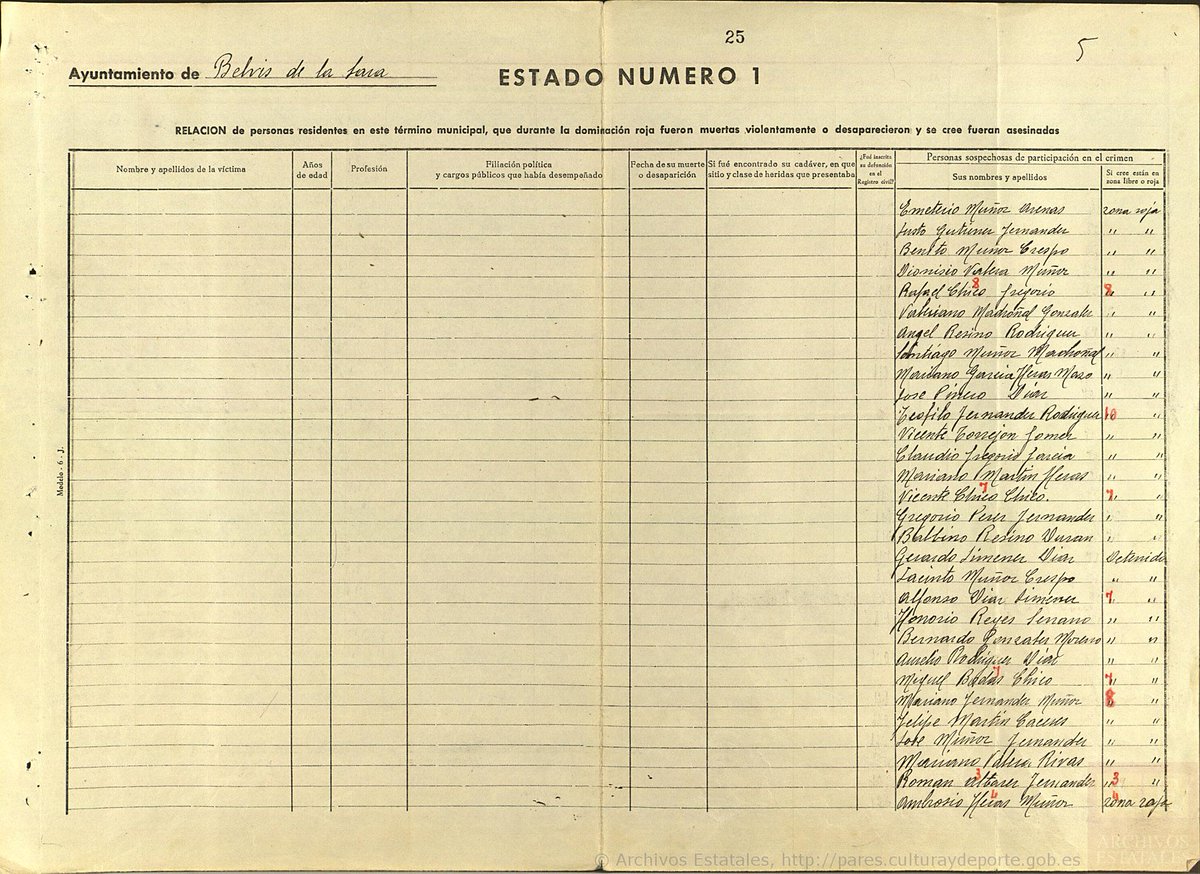 25
5
Ayuntamiento de Belvis de la Jara
ESTADO NUMERO 1
RELACION de personas residentes en este término municipal, que durante la dominación roja fueron muertas violentamente o desaparecieron y se cree fueran asesinadas
Nombre y apellidos de la víctima
Años de edad
Profesión
Filiación política y cargos públicos que había desempeñado
Fecha de su muerte o desaparición
Si fué encontrado su cadáver, en que sitio y clase de heridas que presentaba
¿Fué inscrita su defunción en el Registro civil?
Personas sospechosas de participación en el crimen
Sus nombres y apellidos
Si cree están en zona libre o roja
Emeterio Muñoz Arenas zona roja
Justo Gutiérrez Fernandez " "
Benito Muñoz Crespo " "
Dionisio Valera Muñoz " "
Rafael Chico Gregorio 8 8 " "
Valeriano Madroñal Gonzalez " "
Angel Resino Rodriguez " "
Santiago Muñoz Madroñal " "
Mariano Garcia Heras Mazo " "
Jose Pinero Diaz " "
Teofilo Fernandez Rodriguez 10 "
Vicente Torrejon Gomez " "
Claudio Gregorio Garcia " "
Mariano Martin Heras " "
Vicente Chico Chico. 7 7 " "
Gregorio Perez Fernandez " "
Balbino Resino Duran " "
Gerardo Jimenez Diaz Detenido
Jacinto Muñoz Crespo " "
Alfonso Diaz Jimenez 7 " "
Honorio Reyes Serrano " "
Bernardo Gonzalez Moreno " "
Aurelio Rodriguez Diaz " "
Miguel Badas Chico 7 7 " "
Mariano Fernandez Muñoz 8 " "
Felipe Martin Caceres " "
Jose Muñoz Fernandez " "
Mariano Valera Rivas " "
Roman Fernandez 3 " 3 "
Ambrosio Heras Muñoz 4 4 zona roja
Modelo - 6 - J.
ARCHIVOS ESTATALES
© Archivos Estatales, http://pares.culturaydeporte.gob.es